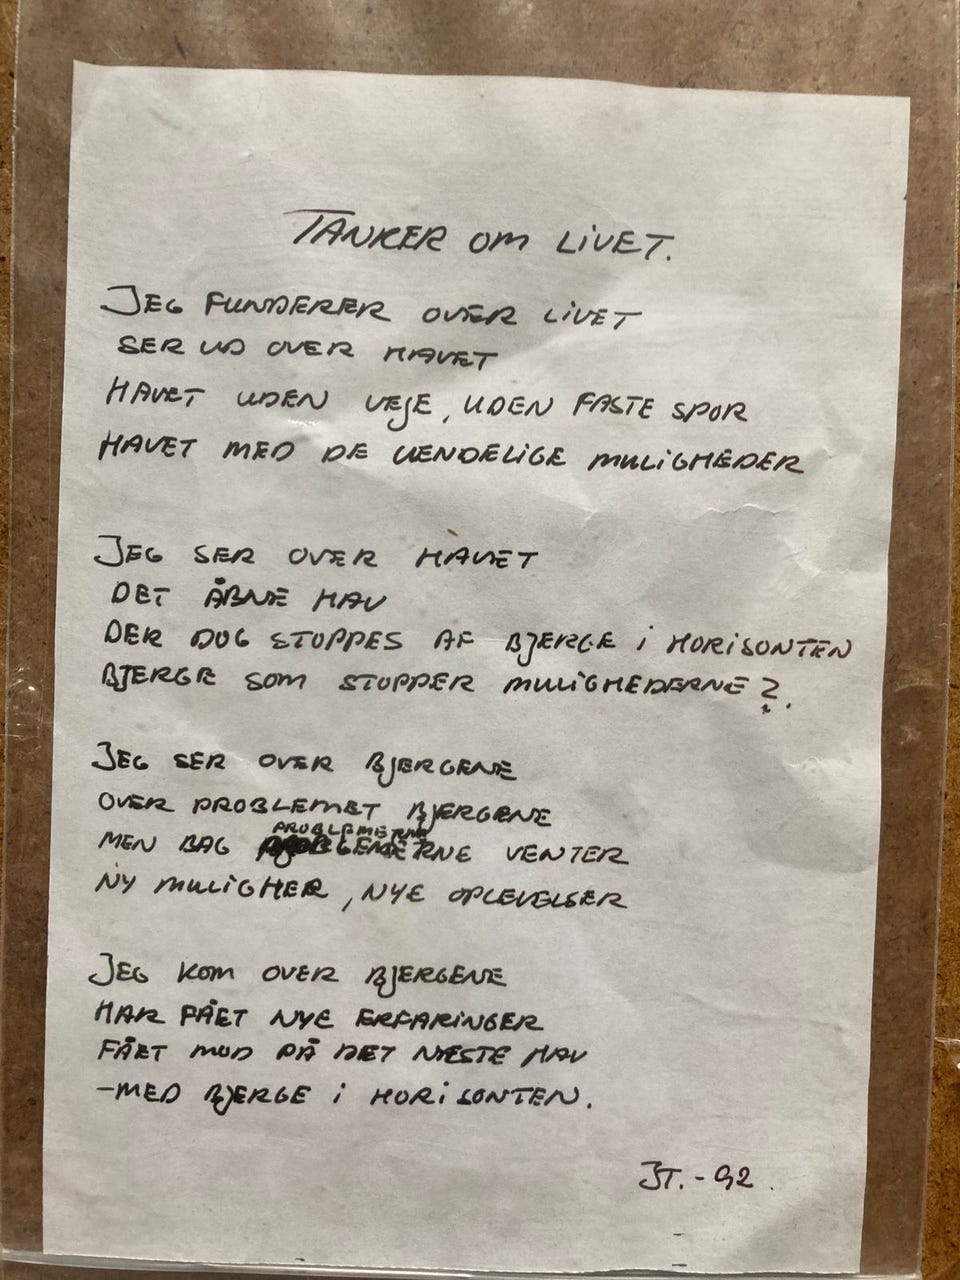 TANKER OM LIVET.
JEG FUNDERER OVER LIVET
SER UD OVER HAVET
HAVET UDEN VEJE, UDEN FASTE SPOR
HAVET MED DE UENDELIGE MULIGHEDER
JEG SER OVER HAVET
DET ÅBNE HAV
DER DOG STOPPES AF BJERGE i HORISONTEN
BJERGE SOM STOPPER MULIGHEDERNE?.
JEG SER OVER BJERGENE
OVER PROBLEMET BJERGENE
PROBLEMERNE
MEN BAG VENTER
NY MULIGHER, NYE OPLEVELSER
JEG KOM OVER BJERGENE
HAR FÅET NYE ERFARINGER
FÅET MOD PÅ DET NÆSTE HAV
-MED BJERGE i HORISONTEN.
JT.-92.